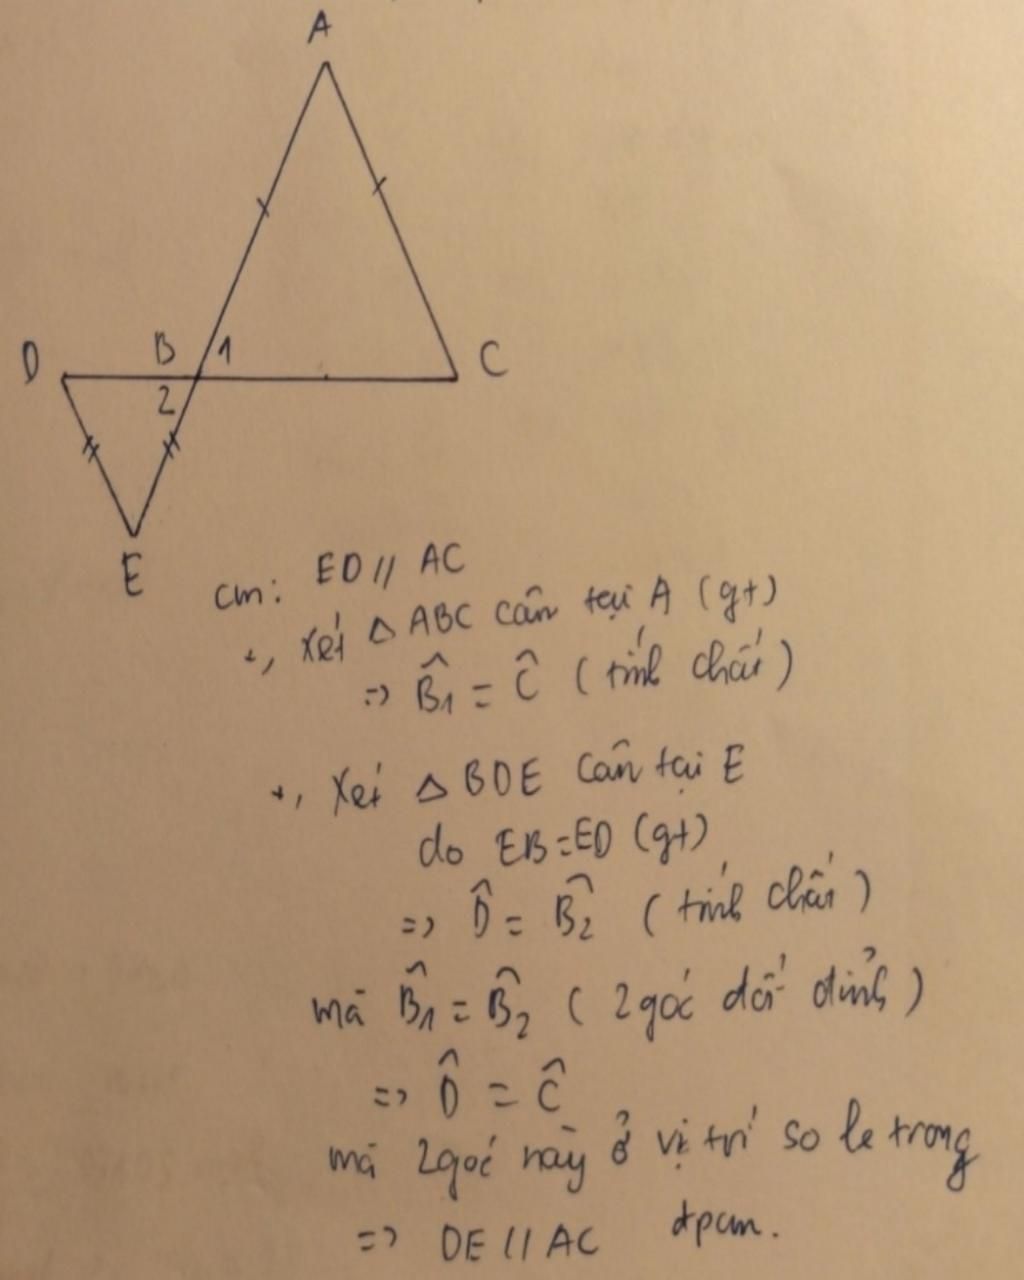 A
D
B
1
C
2
E
cm: ED // AC
+, Xét △ ABC cân tại A (gt)
=> B̂₁ = Ĉ (tính chất)
+, Xét △ BDE cân tại E
do EB=ED (gt)
=> D̂ = B̂₂ (tính chất)
mà B̂₁ = B̂₂ (2 góc đối đỉnh)
=> D̂ = Ĉ
mà 2 góc này ở vị trí so le trong
=> DE // AC đpcm.